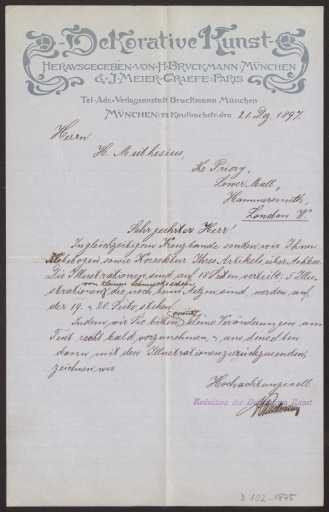 Dekorative Kunst
HERAUSGEGEBEN VON H. BRUCKMANN MÜNCHEN
& J. MEIER-GRAEFE PARIS
Tel-Adr. Verlagsanstalt Bruckmann München
MÜNCHEN: 22 Kaulbachstr. den 21. Dez 1897.
Herrn
H. Muthesius,
Priory,
Lower Mall,
Hammersmith,
London W.
Sehr geehrter Herr!
In gleichzeitigem Kreuzbande senden wir Ihnen
Klebebogen sowie Korrektur Ihres Artikels über Ashbee.
Die Illustrationen sind auf 18 Seiten verteilt. 5 Illu-
von kleinen Schmucksachen
strationen, die noch beim Aetzen sind, werden auf
der 19. 20. Seite stehen.
Indem wir Sie bitten, event. kleine Veränderungen am
Text recht bald vorzunehmen, u. uns denselben
dann mit den Illustrationen zurückzusenden,
zeichnen wir
Hochachtungsvoll
Redaktion der Dekorativen Kunst
D 102-1875